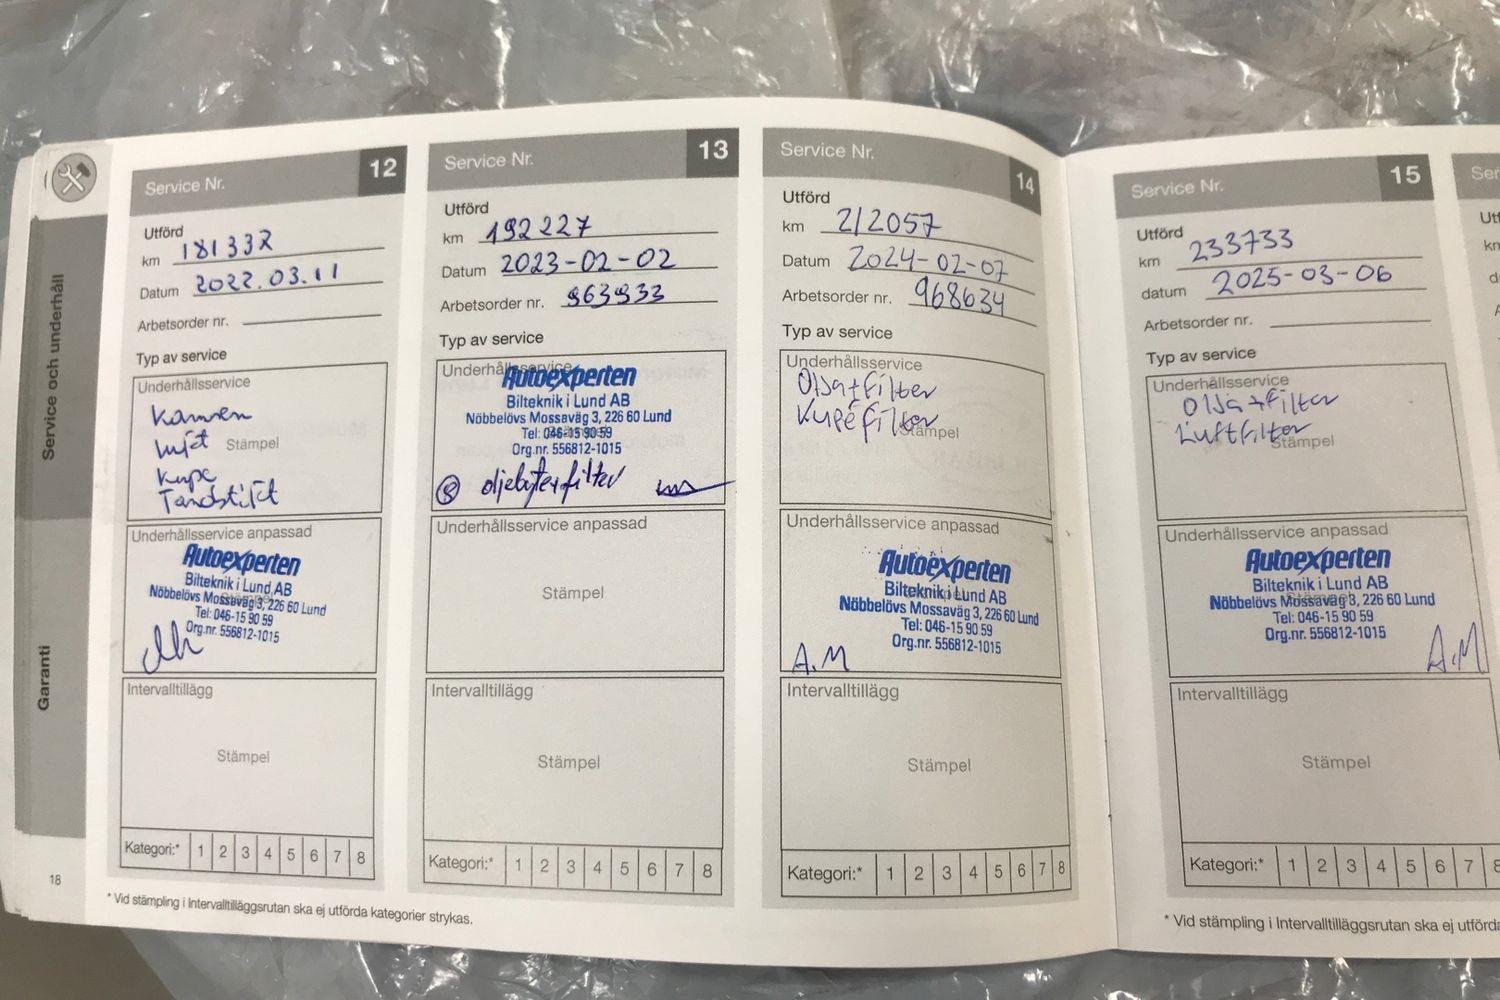 Service och underhåll
Garanti
18
Service Nr. 12
Utförd
km 181332
Datum 2022.03.11
Arbetsorder nr.
Typ av service
Underhållsservice
Stämpel
Kupe
Tandstift
Underhållsservice anpassad
Autoexperten
Bilteknik i Lund AB
Nöbbelövs Mossaväg 3, 226 60 Lund
Tel: 046-15 90 59
Org.nr. 556812-1015
Intervalltillägg
Stämpel
Kategori:* 1 2 3 4 5 6 7 8
* Vid stämpling i Intervalltilläggsrutan ska ej utförda kategorier strykas.
Service Nr. 13
Utförd
km 192227
Datum 2023-02-02
Arbetsorder nr. 963933
Typ av service
Underhållsservice
Autoexperten
Bilteknik i Lund AB
Nöbbelövs Mossaväg 3, 226 60 Lund
Tel: 046-15 90 59
Org.nr. 556812-1015
oljebyte+filter
Underhållsservice anpassad
Stämpel
Intervalltillägg
Stämpel
Kategori:* 1 2 3 4 5 6 7 8
Service Nr. 14
Utförd
km 212057
Datum 2024-02-07
Arbetsorder nr. 968634
Typ av service
Underhållsservice
Olja+filter
Kupéfilter
Stämpel
Underhållsservice anpassad
Autoexperten
Bilteknik i Lund AB
Nöbbelövs Mossaväg 3, 226 60 Lund
Tel: 046-15 90 59
Org.nr. 556812-1015
A.M
Intervalltillägg
Stämpel
Kategori:* 1 2 3 4 5 6 7 8
Service Nr. 15
Utförd
km 233733
datum 2025-03-06
Arbetsorder nr.
Typ av service
Underhållsservice
Olja+filter
Luftfilter
Stämpel
Underhållsservice anpassad
Autoexperten
Bilteknik i Lund AB
Nöbbelövs Mossaväg 3, 226 60 Lund
Tel: 046-15 90 59
Org.nr. 556812-1015
A.M
Intervalltillägg
Stämpel
Kategori:* 1 2 3 4 5 6 7 8
* Vid stämpling i Intervalltilläggsrutan ska ej utförda